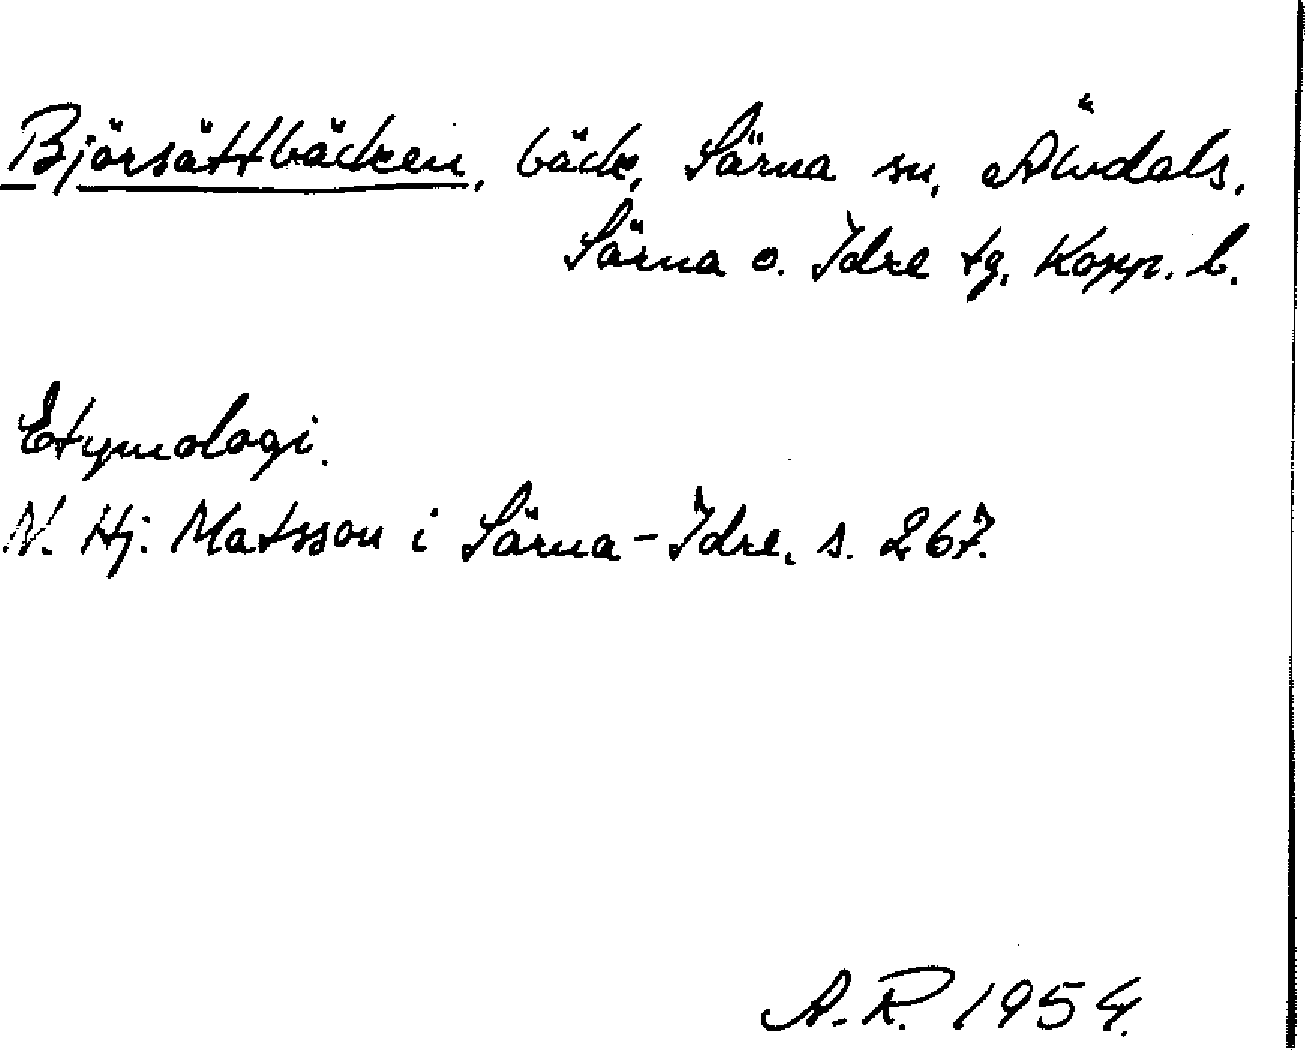 Björsättbäcken, bäck, Särna sn, Älvdals,
Särna o. Idre tg, Kopp. l.
Etymologi.
N. Hj. Matsson i Särna-Idre, s. 267.
A. R. 1954.